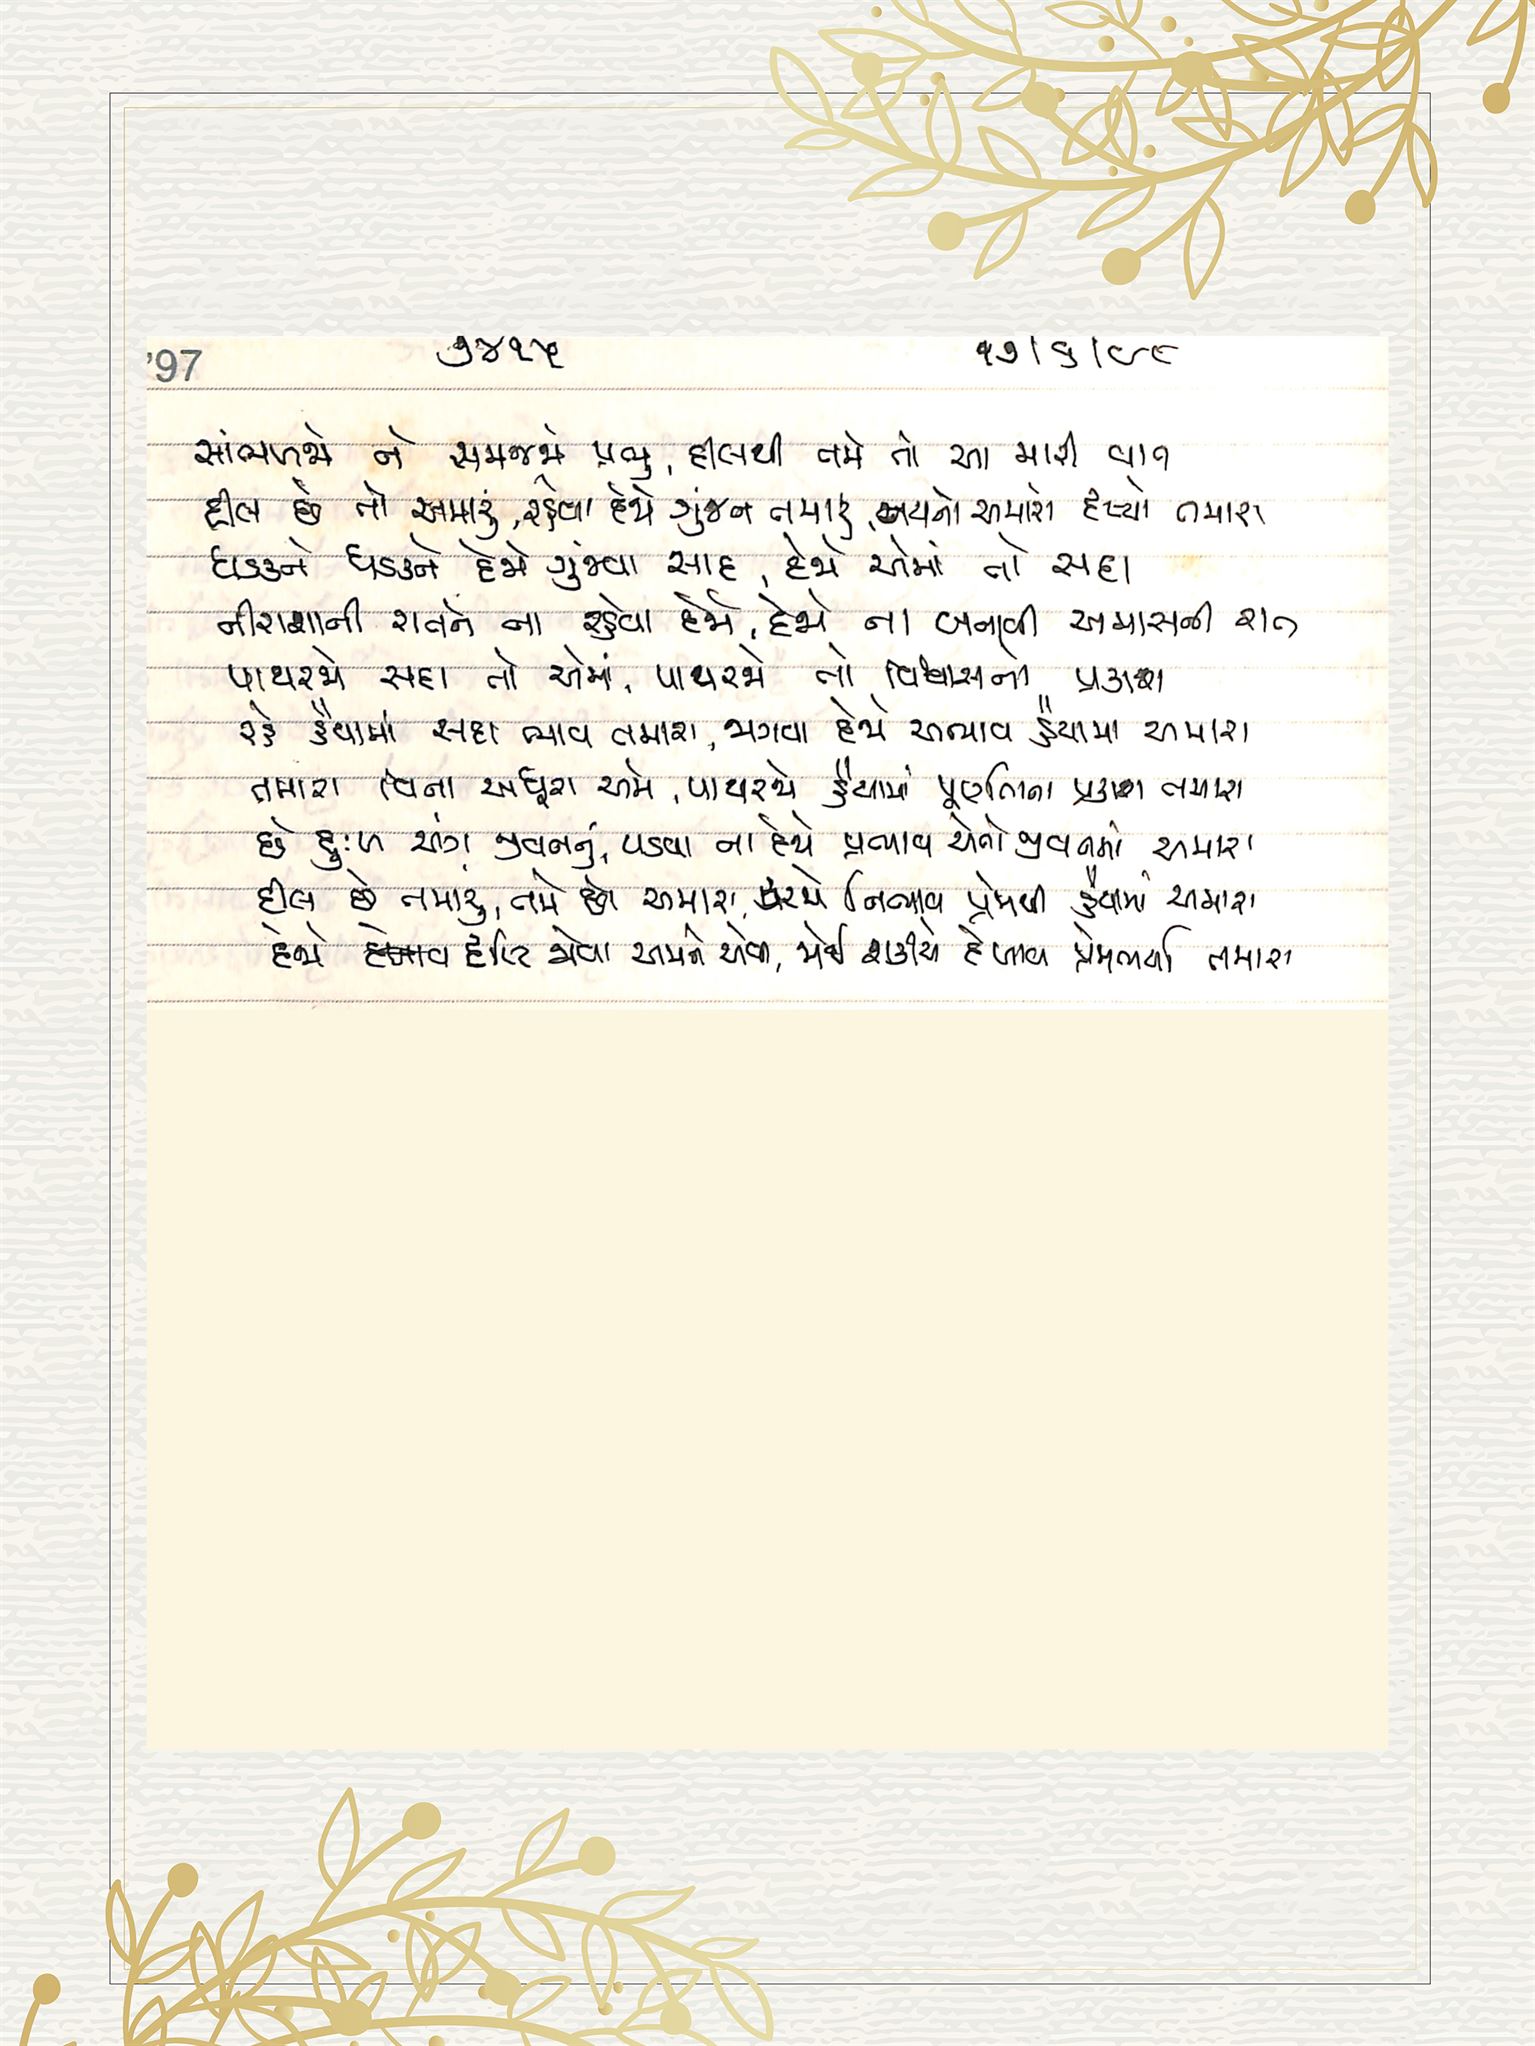 '97 ૭૪૧૫ ૧૭/૬/૯૮
સાંભળજો ને સમજજો પ્રભુ, દીલથી તમે તો આ મારી વાત
દીલ છે તો અમારું, રહેવા દેજો ગુંજન તમારું, નયનો અમારો દૃશ્યો તમારા
ધડકને ધડકને દેજો ગુંજવા સાદ, દેજો એમાં તો સદા
નીરાશાની રાતને ના રહેવા દેજો, દેજો ના બનાવી અમાસની રાત
પાથરજો સદા તો એમાં, પાથરજો તો વિશ્વાસનો પ્રકાશ
રહે હૈયામાં સદા ભાવ તમારા, જાગવા દેજો અભાવ હૈયામાં અમારા
તમારા વિના અધૂરા અમે, પાથરજો હૈયામાં પૂર્ણતાના પ્રકાશ તમારા
છે દુઃખ અંગ જીવનનું, પડવા ના દેજો પ્રભાવ એનો જીવનમાં અમારા
દીલ છે તમારું, તમે છો અમારા, ભરજો નિજભાવ પ્રેમથી હૈયામાં અમારા
દેજો દૃષ્ટિ જોવા અમને એવી, જોઈ શકીએ દેખાવ પ્રેમભર્યા તમારા